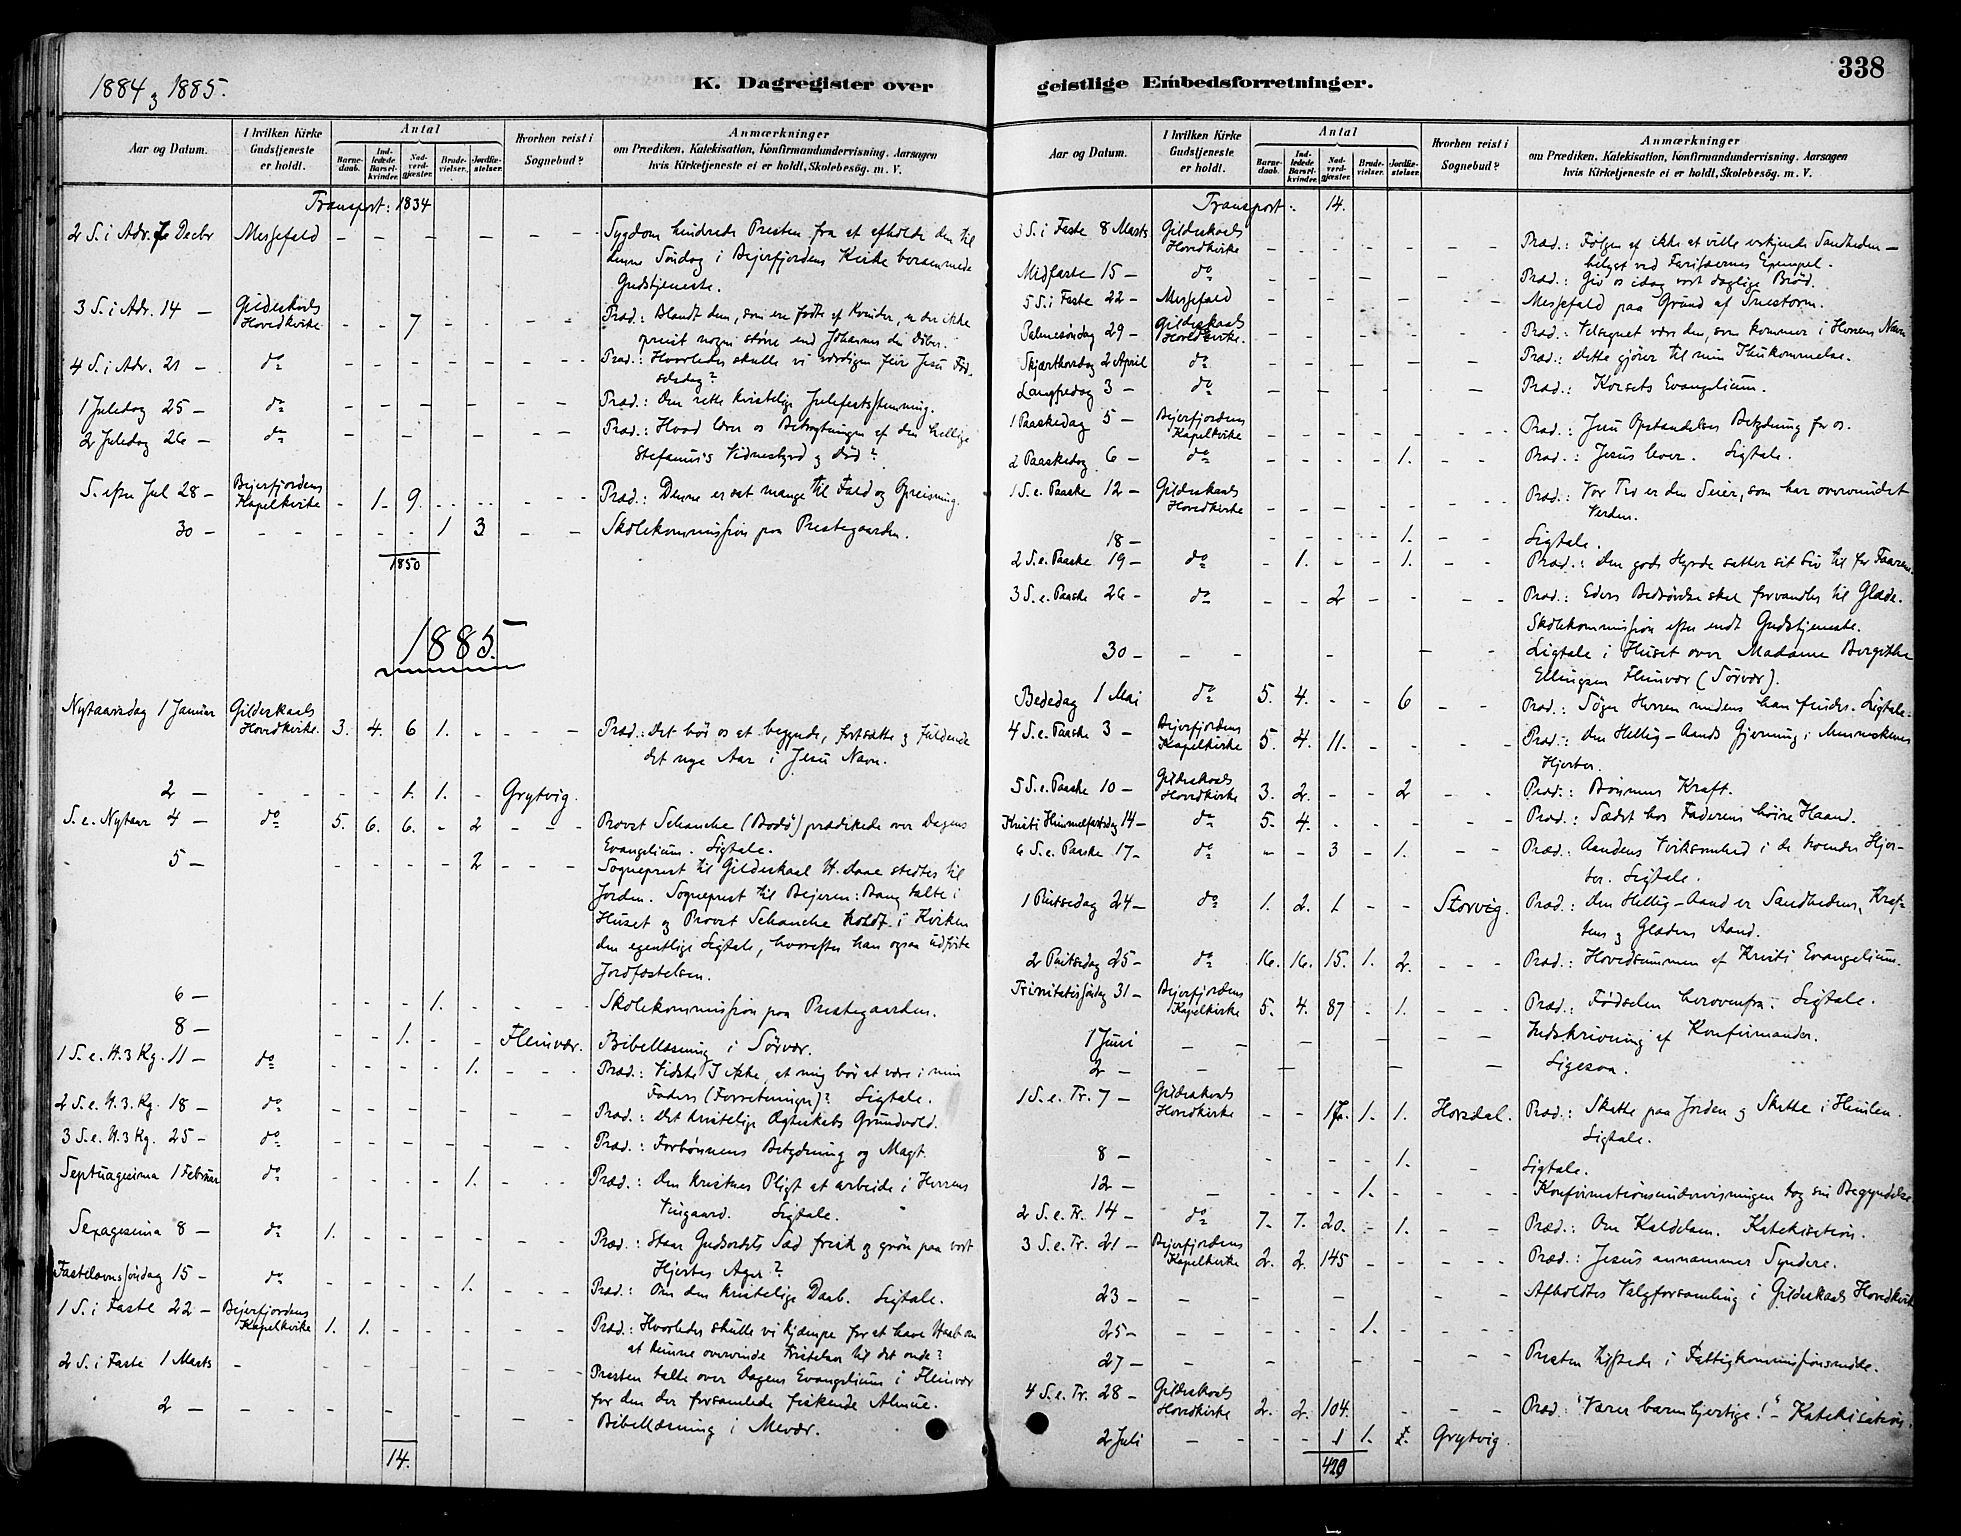 338
1884 & 1885.
K. Dagregister over
geistlige Embedsforretninger.
Aar og Datum.
I hvilken Kirke Gudstjeneste er holdt.
Antal
Barne- daab.
Ind- ledede Barsel- kvinder.
Nad- verd- gjæster.
Brude- vielser.
Jordfæ- stelser.
Hvorhen reist i Sognebud?
Anmærkninger
om Prædiken, Katekisation, Konfirmandundervisning, Aarsagen
hvis Kirketjeneste ei er holdt, Skolebesøg. m. V.
Transport: 1834
2 S. i Adv. 7 Decbr Messefald - - - - - - - Sygdom hindrede Presten fra at afholde den til
denne Söndag i Bejerfjordens Kirke berammede
Gudstjeneste.
3 S. i Adv. 14 - Gildeskaals Hovedkirke - - 7 - - - - Præd.: Blandt dem, som ere fødte af Kvinder, er der ikke
opreist nogen større end Johannes den Døber.
4 S. i Adv. 21 - do - - - - - - - Præd.: Hvorledes skulle vi værdigen feire Jesu Fød-
selsdag?
1 Juledag 25 - do - - - - - - - Præd.: Den rette kristelige Julefestsstemning.
2 Juledag 26 - do - - - - - - - Præd.: Hvad lærer os Betragtningen af den hellige
Stefanus's Vidnesbyrd og Död?
S. efter Jul 28 - Beierfjordens Kapelkirke - 1. 9. - - - - Præd.: Denne er sat mange til Fald og Opreisning.
30 - - - - - - 1 3 - - Skolekommission paa Prestegaarden.
1850
1885.
Nytaarsdag 1 Januar Gildeskaals Hovedkirke. 3. 4. 6 1. - - - Præd.: Det bør os at begynde, fortsætte og fuldende
det nye Aar i Jesu Navn.
2 - - - - - 1. 1. - Grytvig.
S. e. Nytaar 4 - do 5. 6. 6. - 2 - - - Provst Schanche (Bodö) prædikede over Dagens
Evangelium. Ligtale.
5 - - - - - 2 - - - Sogneprest til Gildeskaal H. Daae stedtes til
Jorden. Sogneprest til Bejeren: Bang talte i
Huset og Provst Schanche holdt i Kirken
den egentlige Ligtale, hvorefter han ogsaa udførte
Jordfæstelsen.
6 - - - - 1. - - - Skolekommission paa Prestegaarden.
8 - - - 1. - - Fleinvær. Bibellæsning i Sørvær.
1 S. e. H. 3 Kg. 11 - do - - - - 1. - - - Præd.: Vidste I ikke, at mig bör at være i min
Faders (Forretninger)? Ligtale.
2 S. e. H. 3. Kg. 18 - do - - - - - - - Præd.: Det kristelige Ægteskabs Grundvold.
3 S. e. H. 3 Kg. 25 - do - - - - - - - Præd.: Forbønnens Betydning og Magt.
Septuagesima 1 Februar do - - - - 1. - - - Præd.: Den kristnes Pligt at arbeide i Herrens
Vingaard. Ligtale.
Sexagesima 8 - do 1. - - - - - - Præd.: Staar Gudsordets Sæd frisk og grön paa vort
Hjertes Ager?
Fastelavnssöndag 15 - do - - - - 1. - - - Præd.: Om den kristelige Daab. Ligtale.
1 S. i Faste 22 - Bejerfjordens Kapelkirke 1. 1. - - - - - Præd.: Hvorledes skulle vi kjæmpe for at have Haab om
at kunne overvinde Fristelser til det onde?
2 S. i Faste 1 Marts - - - - - - - - Presten talte over Dagens Evangelium i Fleinvær
for den der forsamlede fiskende Almue.
2 - - - - - - - - - Bibellæsning i Mevær.
14.
Aar og Datum.
I hvilken Kirke Gudstjeneste er holdt.
Antal
Barne- daab.
Ind- ledede Barsel- kvinder.
Nad- verd- gjæster.
Brude- vielser.
Jordfæ- stelser.
Hvorhen reist i Sognebud?
Anmærkninger
om Prædiken, Katekisation, Konfirmandundervisning, Aarsagen
hvis Kirketjeneste ei er holdt, Skolebesøg. m. V.
Transport: 14.
3 S. i Faste 8 Marts Gildeskaals Hovedkirke - - - - - - - Præd.: Følgen af ikke at ville erkjende Sandheden -
belyst ved Farisæernes Exempel.
Midfaste 15 - do - - - - - - - Præd.: Giv os idag vort daglige Bröd.
5 S. i Faste 22 - Messefald - - - - - - Messefald paa Grund af Snestorm.
Palmesöndag 29 - Gildeskaals Hovedkirke. - - - - - - - Præd.: Velsignet være den, som kommer i Herrens Navn
Skjærthorsdag 2 April do - - - - - - Præd.: Dette gjörer til min Ihukommelse.
Langfredag 3 - do - - - - Præd.: Korsets Evangelium.
1 Paaskedag 5 - Bejerfjordens Kapelkirke - - - - - - - Præd.: Jesu Opstandelses Betydning for os.
2 Paaskedag 6 - do - - - - 1. - - Præd.: Jesus lever. Ligtale.
1 S. e. Paaske 12 - Gildeskaals Hovedkirke - - - - - - - Præd.: Vor Tro er den Seier, som har overvundet
Verden.
18 - - - - - 1. - - Ligtale.
2 S. e. Paaske 19 - do - 1. - - 1. - - Præd.: Den gode Hyrde sætter sit Liv til for Faarene.
3 S. e. Paaske 26 - do - - 2 - - - - Præd.: Eders Bedrövelse skal forvandles til Glæde.
Skolekommission efter endt Gudstjeneste.
30 - - - - - - Ligtale i Huset over Madame Bergithe
Ellingsen Fleinvær (Sörvær).
Bededag 1 Mai do 5. 4. - - 6 - - Præd.: Söger Herren medens han findes. Ligtale.
4 S. e. Paaske 3 - Beijerfjordens Kapelkirke 5. 4. 11. - - - - Præd.: Den Hellig-Aands Gjerning i Menneskenes
Hjerter.
5 S. e. Paaske 10 - Gildeskaals Hovedkirke 3. 2. - - 2 - - Præd.: Bønnens Kraft.
Kristi Himmelfartsdag 14 - do 5. 4. Præd.: Sædet hos Faderens höire Haand.
6 S. e. Paaske 17 - do - - 3 - 1. - - Præd.: Aandens Virksomhed i de troendes Hjer-
ter. Ligtale.
1 Pintsedag 24 - do 1. 2. 1. - - Storvig. Præd.: Den Hellig-Aand er Sandhedens, Kraf-
tens og Glædens Aand.
2 Pintsedag 25 - do 16. 16. 15. 1. 2. - - - Præd.: Hovedsummen af Kristi Evangelium.
Trinitatissöndag 31 - Bejerfjordens Kapelkirke 5. 4. 87 - 1. - - - Præd.: Födselen herovenfra. Ligtale.
1 Juni - - - - - - Indskrivning af Konfirmander.
2 - - - - - Ligesaa.
1 S. e. Tr. 7 - Gildeskaals Hovedkirke - - 17. 1. 1. Horsdal. Præd.: Skatte paa Jorden og Skatte i Himlen.
Ligtale.
8 - 1. - Ligtale.
12 - - - - - 1. - - - Konfirmationsundervisningen tog sin Begyndelse
2 S. e. Tr. 14 - do 7. 7. 20. - 1. - - Præd.: Om Kaldelsen. Katekisation.
3 S. e. Tr. 21 - Beijerfjordens Kapelkirke 2. 2. 145 - - - - Præd.: Jesus annammer Syndere.
23 - - - - - - - - Afholdtes Valgforsamling i Gildeskaals Hovedkirke
25 - - - - - - 1. - - -
27 - - - - - - - Presten tilstede i Fattigkommissionsmøde.
4 S. e. Tr. 28 - Gildeskaals Hovedkirke 2. 2. 104. - - - Præd: "Værer barmhjertige!" - Katekisation.
2 Juli - - - 1 1. 1. Grytvig.
420